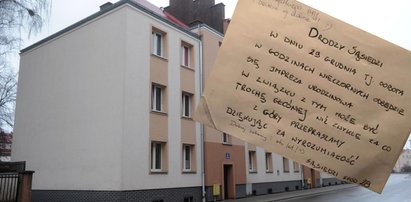 DRODZY SĄSIEDZI
W DNIU 28 GRUDNIA TJ SOBOTA
W GODZINACH WIECZORNYCH ODBĘDZIE
SIĘ IMPREZA URODZINOWA
W ZWIĄZKU Z TYM MOŻE BYĆ
TROCHĘ GŁOŚNIEJ NIŻ ZWYKLE ZA CO
Z GÓRY PRZEPRASZAMY
DZIĘKUJĄC ZA WYROZUMIAŁOŚĆ
SĄSIEDZI